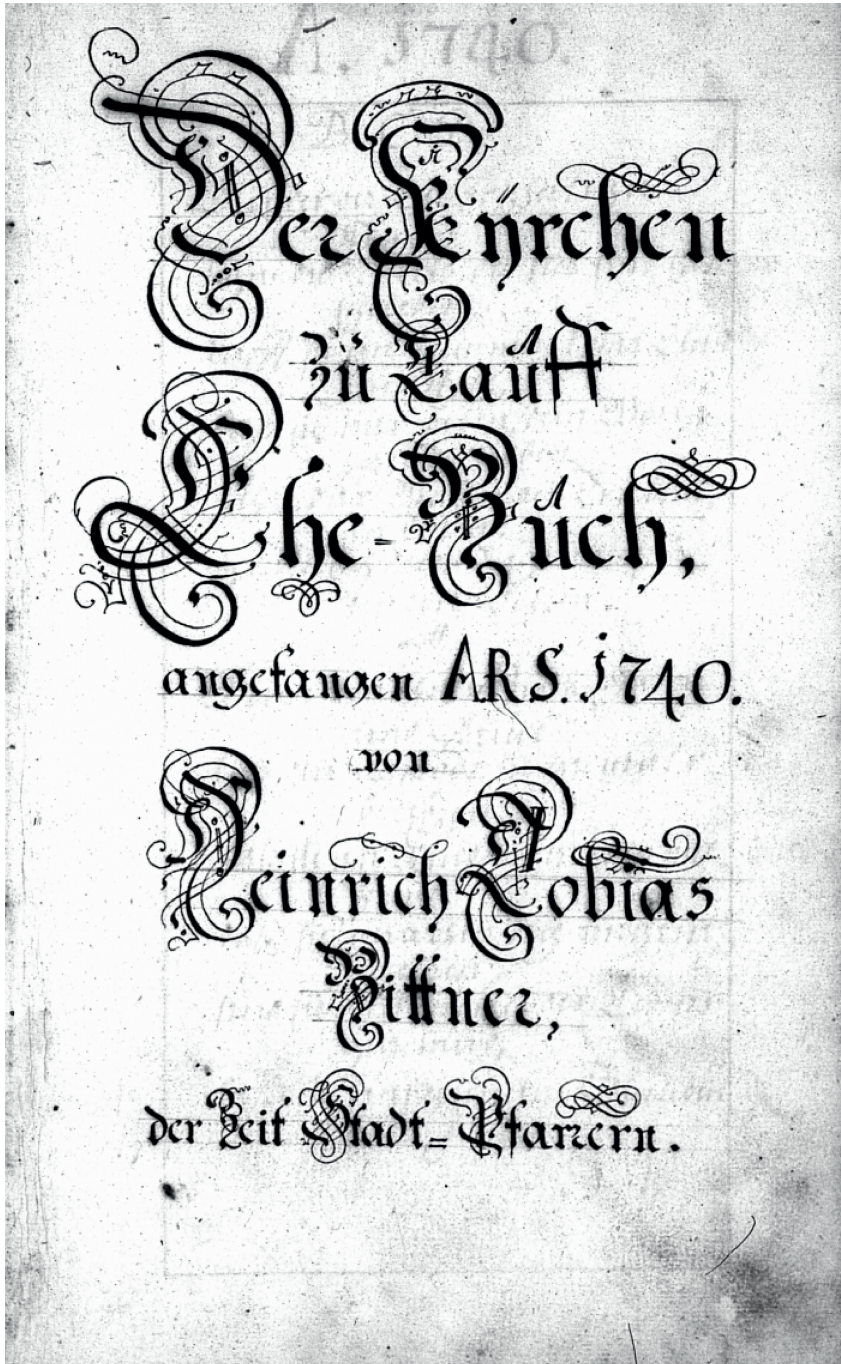 Der Kÿrchen
zu Lauff
Ehe-Buch,
angefangen ARS. 1740.
von
Heinrich Tobias
Bittner,
der Zeit Stadt=Pfarrern.